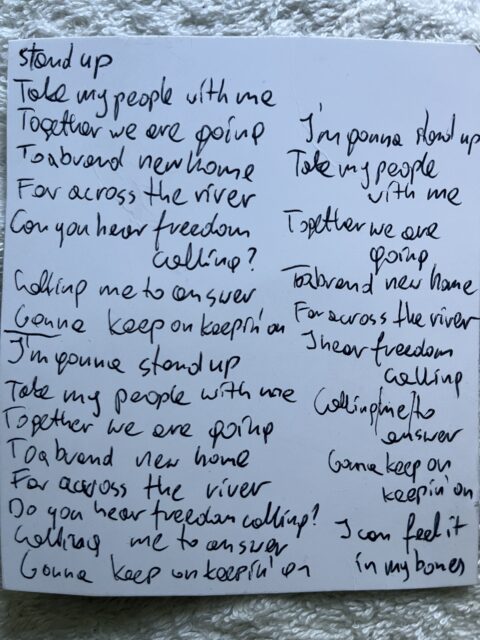 stand up
Take my people with me
Together we are going
To a brand new home
Far across the river
Can you hear freedom
calling?
Calling me to answer
Gonna keep on keepin' on
I'm gonna stand up
Take my people with me
Together we are going
To a brand new home
Far across the river
Do you hear freedom calling?
Calling me to answer
Gonna keep on keepin' on
I'm gonna stand up
Take my people
with me
Together we are
going
To a brand new home
Far across the river
I hear freedom
calling
Calling me to
answer
Gonna keep on
keepin' on
I can feel it
in my bones